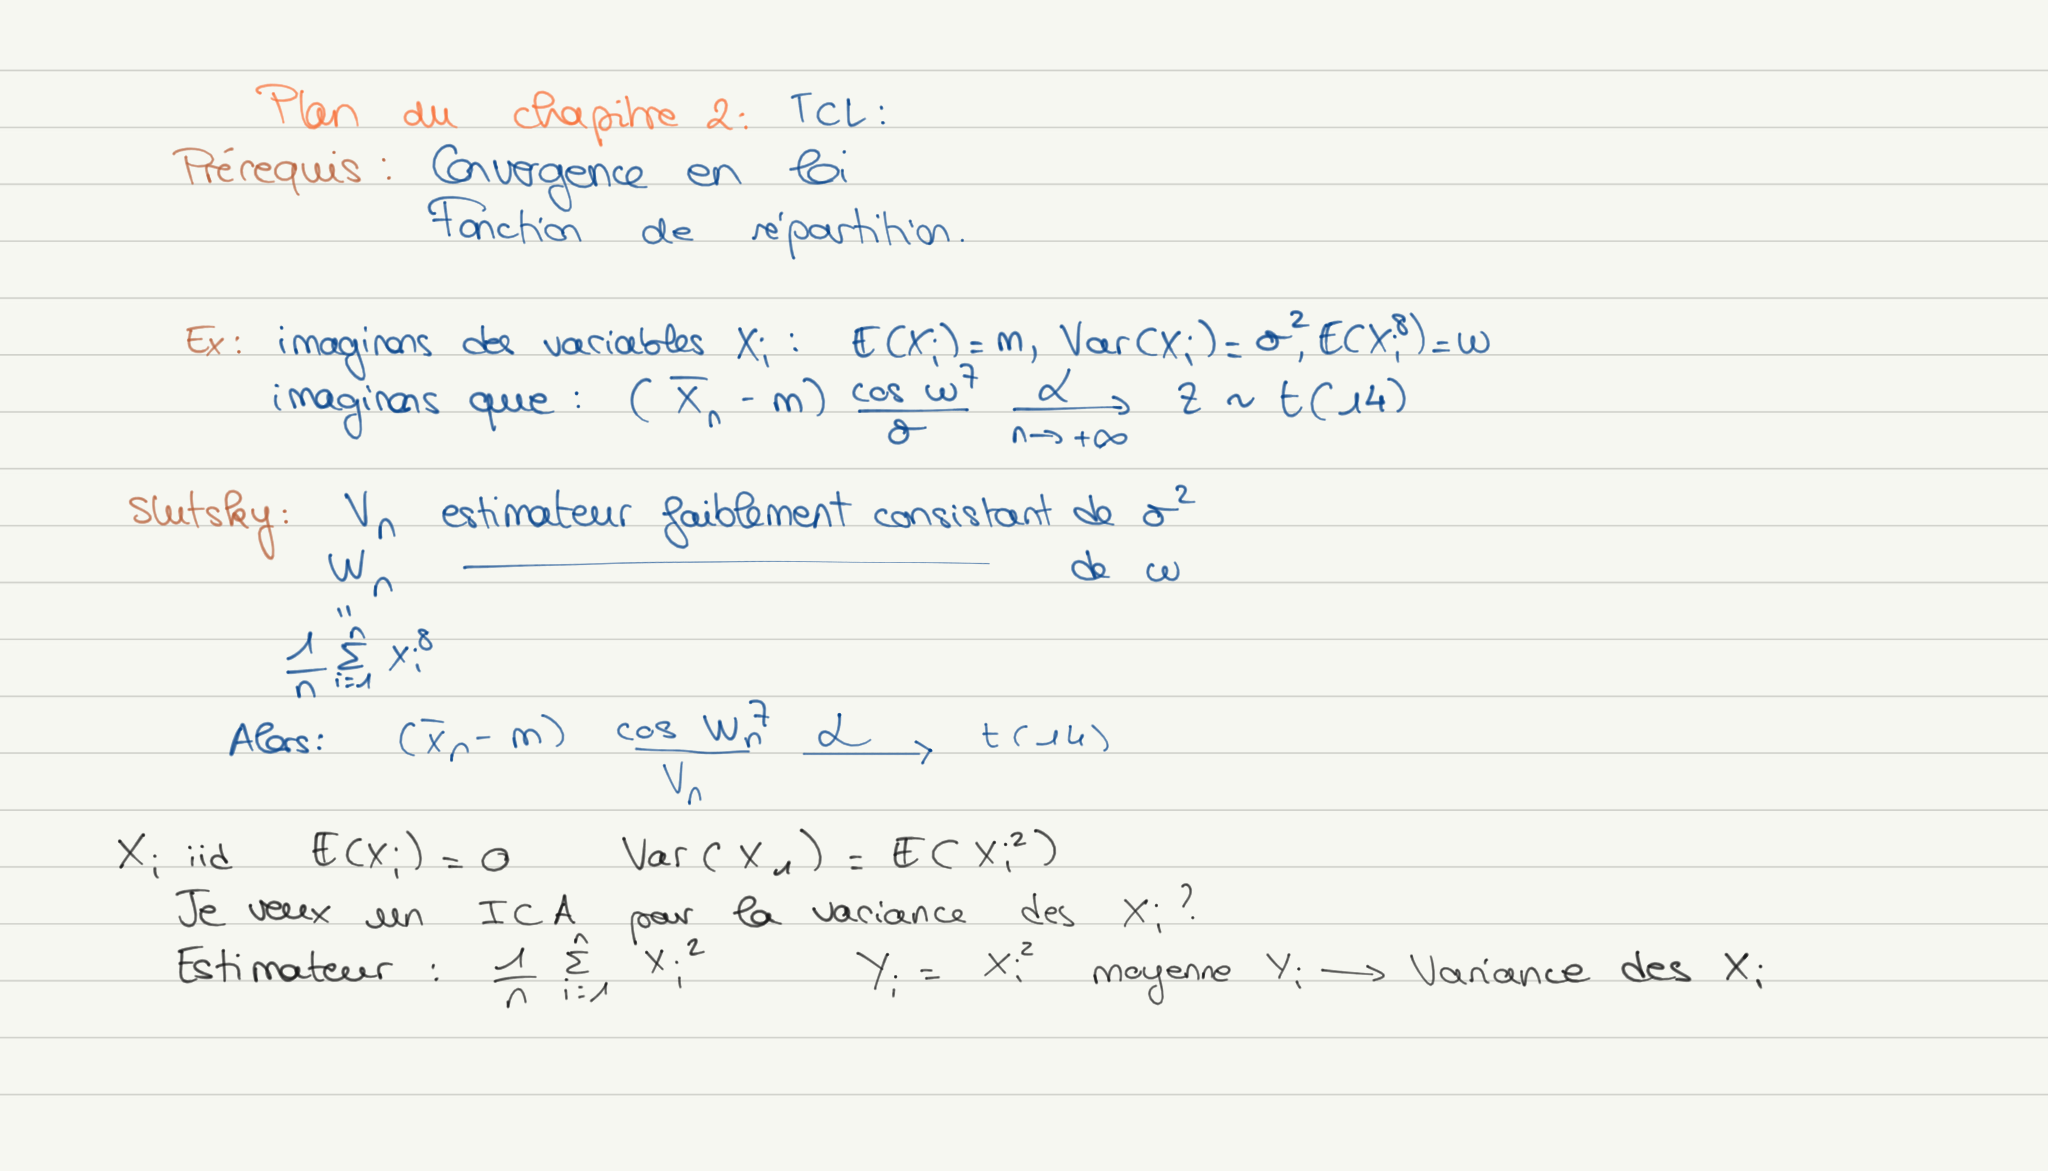 Plan du chapitre 2: TCL:
Prérequis: Convergence en loi
Fonction de répartition.
Ex: imaginons des variables Xi : E(Xi) = m, Var(Xi) = σ², E(Xi⁸) = ω
imaginons que : (X̄n - m) cos ω⁷ / σ →^ℒ_{n→+∞} Z ~ t(14)
Slutsky: Vn estimateur faiblement consistant de σ²
Wn ———————— de ω
"
1/n Σ_{i=1}^n Xi⁸
Alors: (X̄n - m) cos Wn⁷ / Vn →^ℒ t(14)
Xi iid E(Xi) = 0 Var(X1) = E(Xi²)
Je veux un ICA pour la variance des Xi ?
Estimateur : 1/n Σ_{i=1}^n Xi² Yi = Xi² moyenne Yi → Variance des Xi